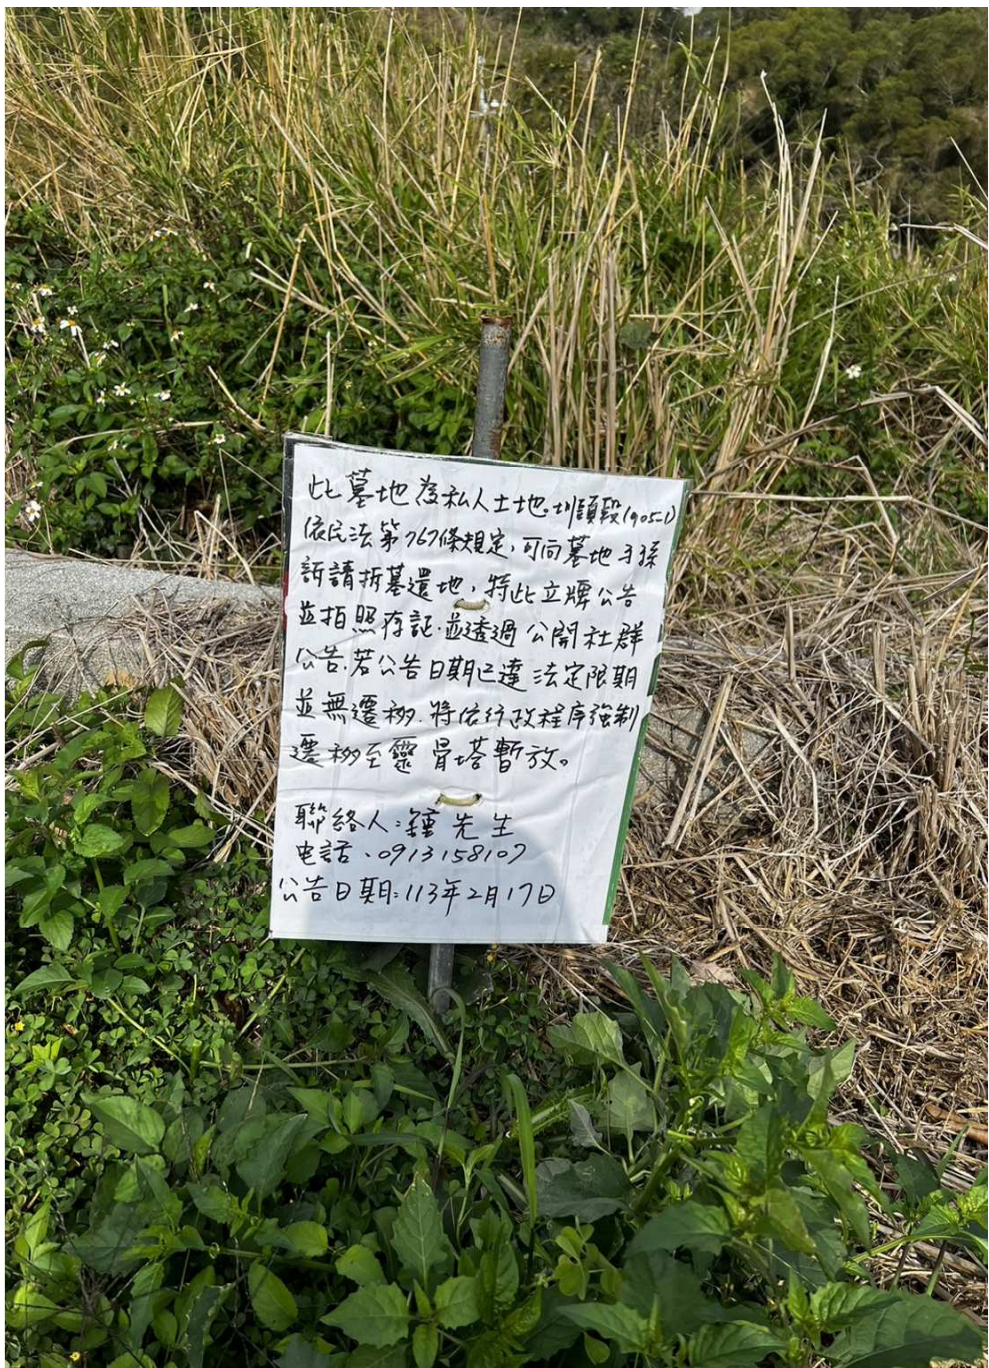 此墓地為私人土地。圳頭段(905-1)
依民法第767條規定,可向墓地子孫
訴請拆墓還地,特此立牌公告
並拍照存証.並透過公開社群
公告.若公告日期已達法定限期
並無遷移.將依行政程序強制
遷移至靈骨塔暫放。
聯絡人:鍾先生
电話、0913158107
公告日期:113年2月17日